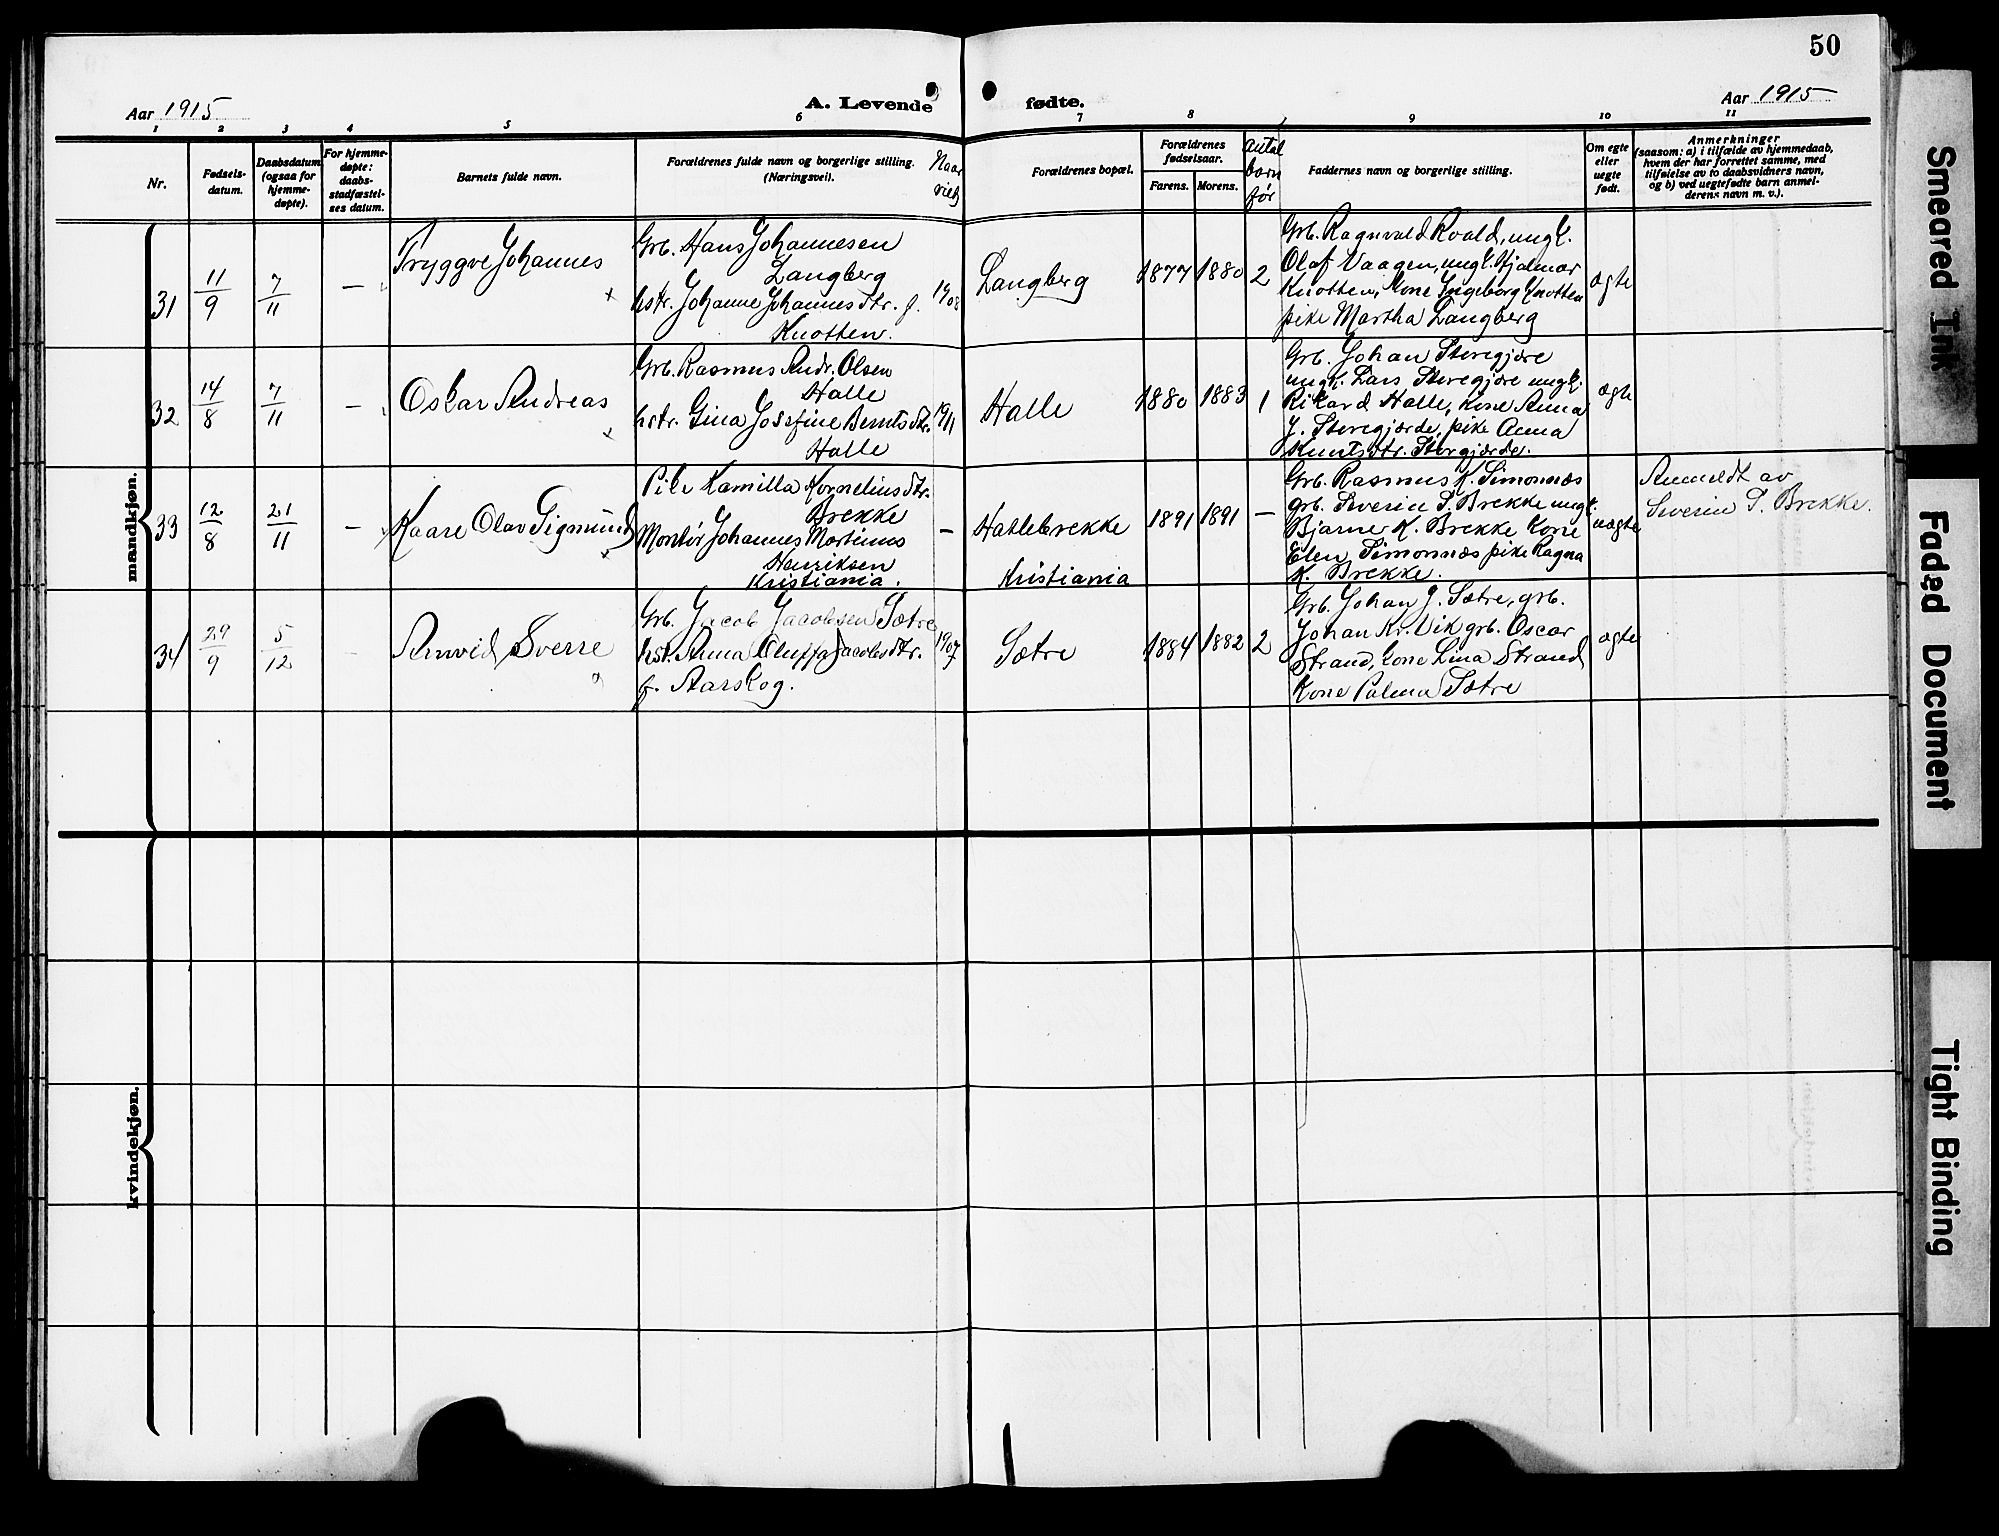 50
Aar 1915
A. Levende fødte.
Aar 1915
1 2 3 4 5 6 7 8 9 10 11
Nr.
Fødsels-
datum.
Daabsdatum
(ogsaa for
hjemme-
døpte).
For hjemme-
døpte:
daabs-
stadfæstel-
ses datum.
Barnets fulde navn.
Forældrenes fulde navn og borgerlige stilling.
(Næringsvei).
Naar
viet
Forældrenes bopæl.
Forældrenes
fødselsaar.
Farens. Morens.
antal
barn
før
Faddernes navn og borgerlige stilling.
Om egte
eller
uegte
født.
Anmerkninger
(saasom: a) i tilfælde av hjemmedaab,
hvem der har forrettet samme, med
tilføielse av to daabsvidners navn,
og b) ved uegtefødte barn anmel-
derens navn m. v.).
mandkjøn.
31
11/9
7/11
—
Tryggve Johannes
Grb. Hans Johannesen
Langberg
hstr. Johanne Johannesdtr. f.
Knotten.
1908
Langberg
1877 1880 2
Grb. Ragnvald Roald, ungk.
Olaf Vaagen, ungk. Hjalmar
Knotten, kone Ingeborg Knotten
pike Martha Langberg
ægte
32
14/8
7/11
—
Oskar Andreas
Grb. Rasmus Andr. Olsen
Halle
hstr. Gina Josefine Berntsdtr.
Halle
1911
Halle
1880 1883 1
Grb. Johan Storegjøre
ungk. Lars Storegjøre ungk.
Rikard Halle, kone Anna
J. Storegjærde, pike Anna
Knutsdtr. Storgjærde.
ægte
33
12/8
21/11
—
Kaare Olav Sigmund
Pike Kamilla Korneliusdtr.
Brekke
Montør Johannes Martinus
Henriksen
Kristiania.
—
Hatlebrekke
Kristiania
1891 1891 —
Grb. Rasmus K. Simonnæs
grb. Severin S. Brekke ungk.
Bjarne K. Brekke Kone
Elen Simonnæs pike Ragna
K. Brekke.
uægte
Anmeldt av
Severin S. Brekke.
34
29/9
5/12
Arnvid Sverre
Grb. Jacob Jacobsen Sætre
hst. Anna Oluffa Jacobsdtr.
f. Aarskog.
1907
Sætre
1884 1882 2
Grb. Johan J. Sætre, grb.
Johan Kr. Vik grb. Oscar
Strand, kone Lina Strand
Kone Palma Sætre
ægte
kvindekjøn.
Smeared Ink
Faded Document
Tight Binding